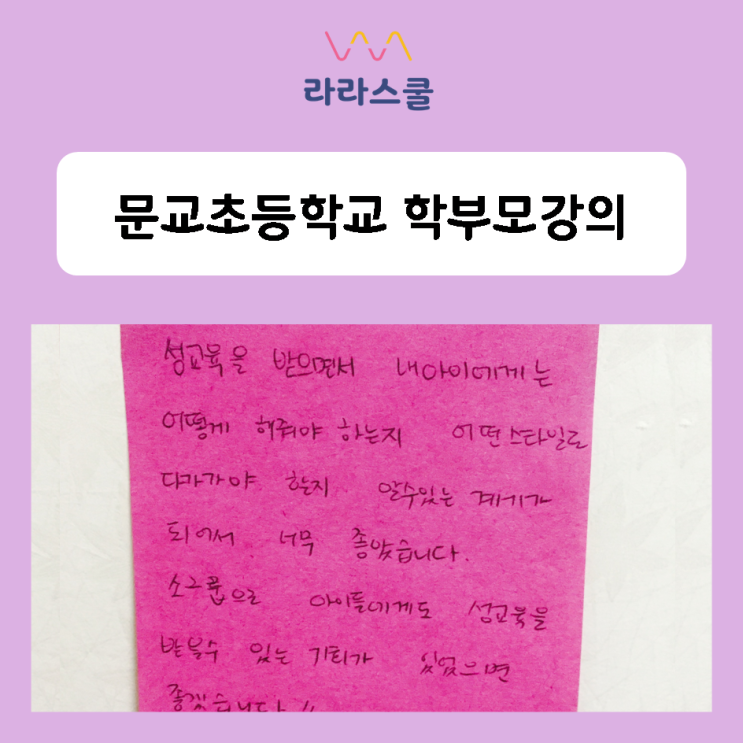 라라스쿨
문교초등학교 학부모강의
성교육을 받으면서 내아이에게는
어떻게 해줘야 하는지 어떤스타일로
다가가야 하는지 알수있는 계기가
되어서 너무 좋았습니다.
소그룹으로 아이들에게도 성교육을
받을수 있는 기회가 있었으면
좋겠습니다!!